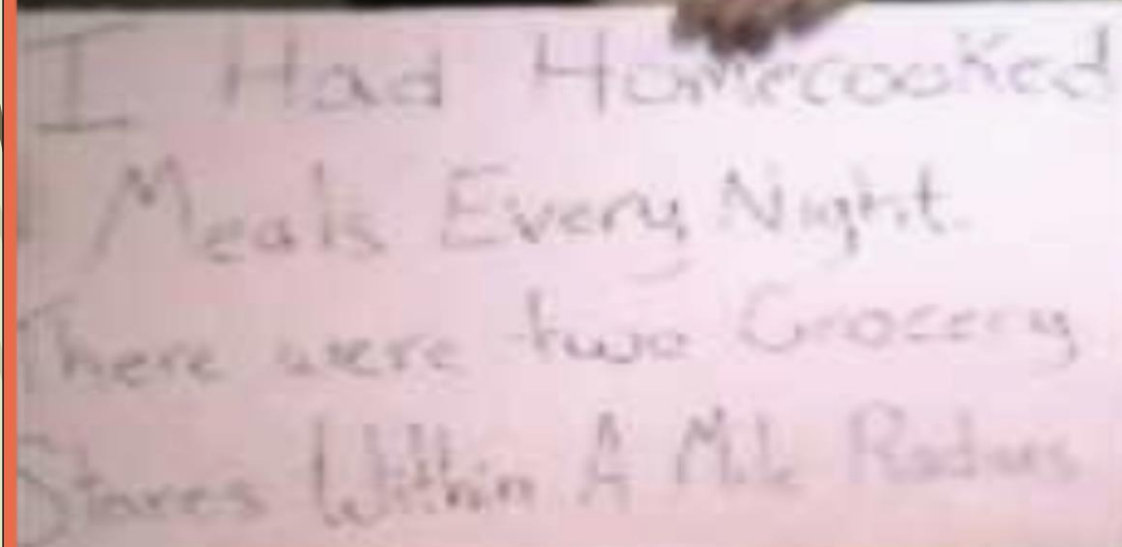 I Had Homecooked
Meals Every Night.
There were two Grocery
Stores Within A Mile Radius